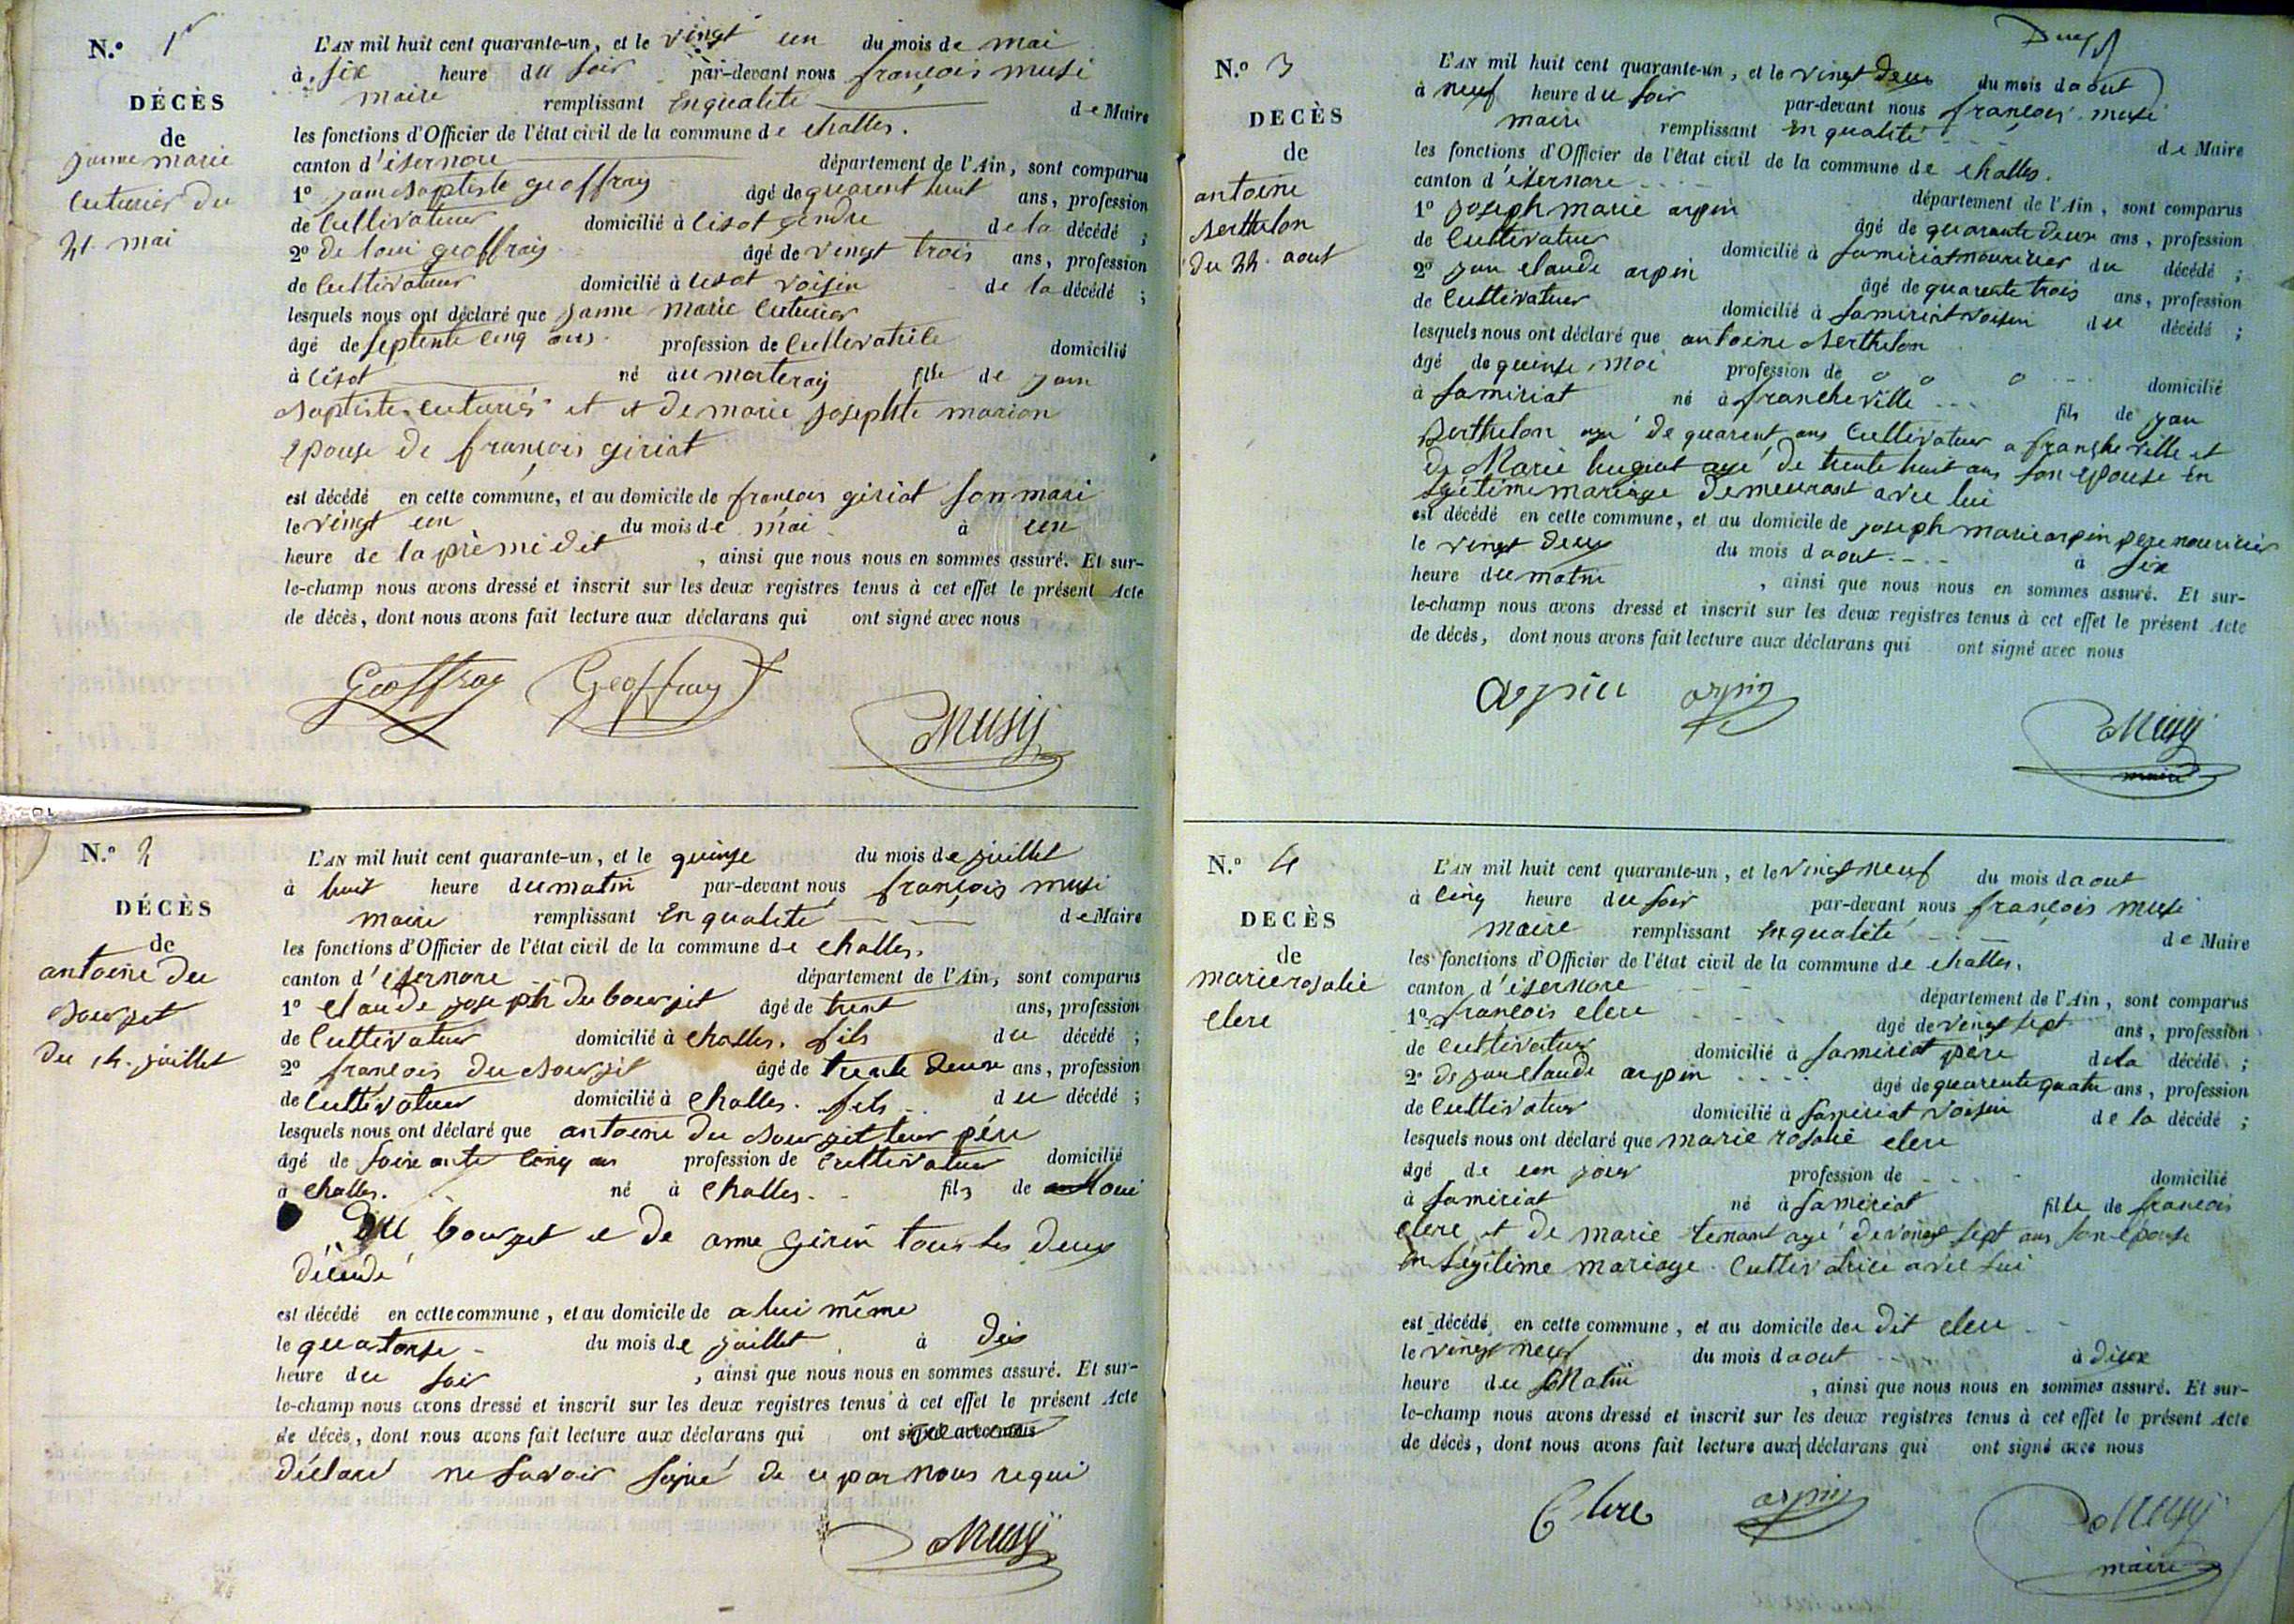 N.° 1r
DÉCÈS
de
janne marie
Cuturier du
21 mai
L'AN mil huit cent quarante-un, et le vingt un du mois de mai
à six heure du soir par-devant nous françois musi
maire remplissant En qualité de Maire
les fonctions d'Officier de l'état civil de la commune de challes.
canton d'isernore département de l'Ain, sont comparus
1° jann baptiste geoffray âgé de quarent huit ans, profession
de Cultivateur domicilié à Cisot gendre de la décédé ;
2° de loui geoffray âgé de vingt trois ans, profession
de Cultivateur domicilié à Cisot voisin de la décédé ;
lesquels nous ont déclaré que janne marie Cuturier
âgé de septente cinq ans profession de Cultivatrice domicilié
à Cisot né au morteray fille de jann
baptiste cuturier et et de marie josephte marion
epouse de françois giriat
est décédé en cette commune, et au domicile de françois giriat son mari
le vingt un du mois de mai à un
heure de la prémidit , ainsi que nous nous en sommes assuré. Et sur-
le-champ nous avons dressé et inscrit sur les deux registres tenus à cet effet le présent Acte
de décès, dont nous avons fait lecture aux déclarans qui ont signé avec nous
Geoffray Geoffray Musy
N.° 2
DÉCÈS
de
antoine du
bourget
du 14. juillet
L'AN mil huit cent quarante-un, et le quinze du mois de juillet
à huit heure du matin par-devant nous françois musi
maire remplissant En qualité de Maire
les fonctions d'Officier de l'état civil de la commune de challes.
canton d'isernore département de l'Ain, sont comparus
1° claude joseph du bourgit âgé de trent ans, profession
de Cultivateur domicilié à challes. fils du décédé ;
2° francois du bourgit âgé de trente deux ans, profession
de Cultivateur domicilié à Challes. fils du décédé ;
lesquels nous ont déclaré que antoine du bourgit leur pére
âgé de soixante cinq ans profession de Cultivateur domicilié
à challes. né à Challes. fils de loui
du bourget e de anne girin tous les deux
décédé
est décédé en cette commune, et au domicile de a lui même
le quatorze du mois de juillet à dix
heure du soir , ainsi que nous nous en sommes assuré. Et sur-
le-champ nous avons dressé et inscrit sur les deux registres tenus à cet effet le présent Acte
de décès, dont nous avons fait lecture aux déclarans qui ont signé avec nous
déclaré ne savoir signé de ce par nous requi
Musy
N.° 3
DECÈS
de
antoine
berthelon
du 22. aout
L'AN mil huit cent quarante-un, et le vingt deux du mois d aout
à neuf heure du soir par-devant nous françois musi
maire remplissant En qualité de Maire
les fonctions d'Officier de l'état civil de la commune de challes.
canton d'isernore département de l'Ain, sont comparus
1° joseph marie arpin âgé de quarante deux ans, profession
de Cultivateur domicilié à samiriat nouricier du décédé ;
2° jan claude arpin âgé de quarente trois ans, profession
de Cultivateur domicilié à samiriat voisin du décédé ;
lesquels nous ont déclaré que antoine berthelon
âgé de quinze moi profession de domicilié
à samiriat né à francheville fils de jan
berthelon agé de quarent ans Cultivateur a francheville et
de Marie hugiot agé de trente huit ans son epouse en
légitime mariage demeurant avec lui
est décédé en cette commune, et au domicile de joseph marie arpin pere nouricier
le vingt deux du mois d aout à six
heure du matin , ainsi que nous nous en sommes assuré. Et sur-
le-champ nous avons dressé et inscrit sur les deux registres tenus à cet effet le présent Acte
de décès, dont nous avons fait lecture aux déclarans qui ont signé avec nous
Arpin arpin Musy
maire
N.° 4
DECÈS
de
marie rosalie
clere
L'AN mil huit cent quarante-un, et le vingt neuf du mois d aout
à cinq heure du soir par-devant nous françois musi
maire remplissant En qualité de Maire
les fonctions d'Officier de l'état civil de la commune de challes.
canton d'isernore département de l'Ain, sont comparus
1° francois clere âgé de vingt sept ans, profession
de Cultivateur domicilié à samiriat pére de la décédé ;
2° de jan claude arpin âgé de quarente quatre ans, profession
de Cultivateur domicilié à samiriat voisin de la décédé ;
lesquels nous ont déclaré que marie rosalie clere
âgé de un jour profession de domicilié
à samiriat né à samiriat fille de francois
clere et de marie tenant agé de vingt sept ans son epouse
en légitime mariage Cultivatrice avec lui
est décédé en cette commune, et au domicile de dit clere
le vingt neuf du mois d aout à dixe
heure du Matin , ainsi que nous nous en sommes assuré. Et sur-
le-champ nous avons dressé et inscrit sur les deux registres tenus à cet effet le présent Acte
de décès, dont nous avons fait lecture aux déclarans qui ont signé avec nous
Clere arpin Musy
maire